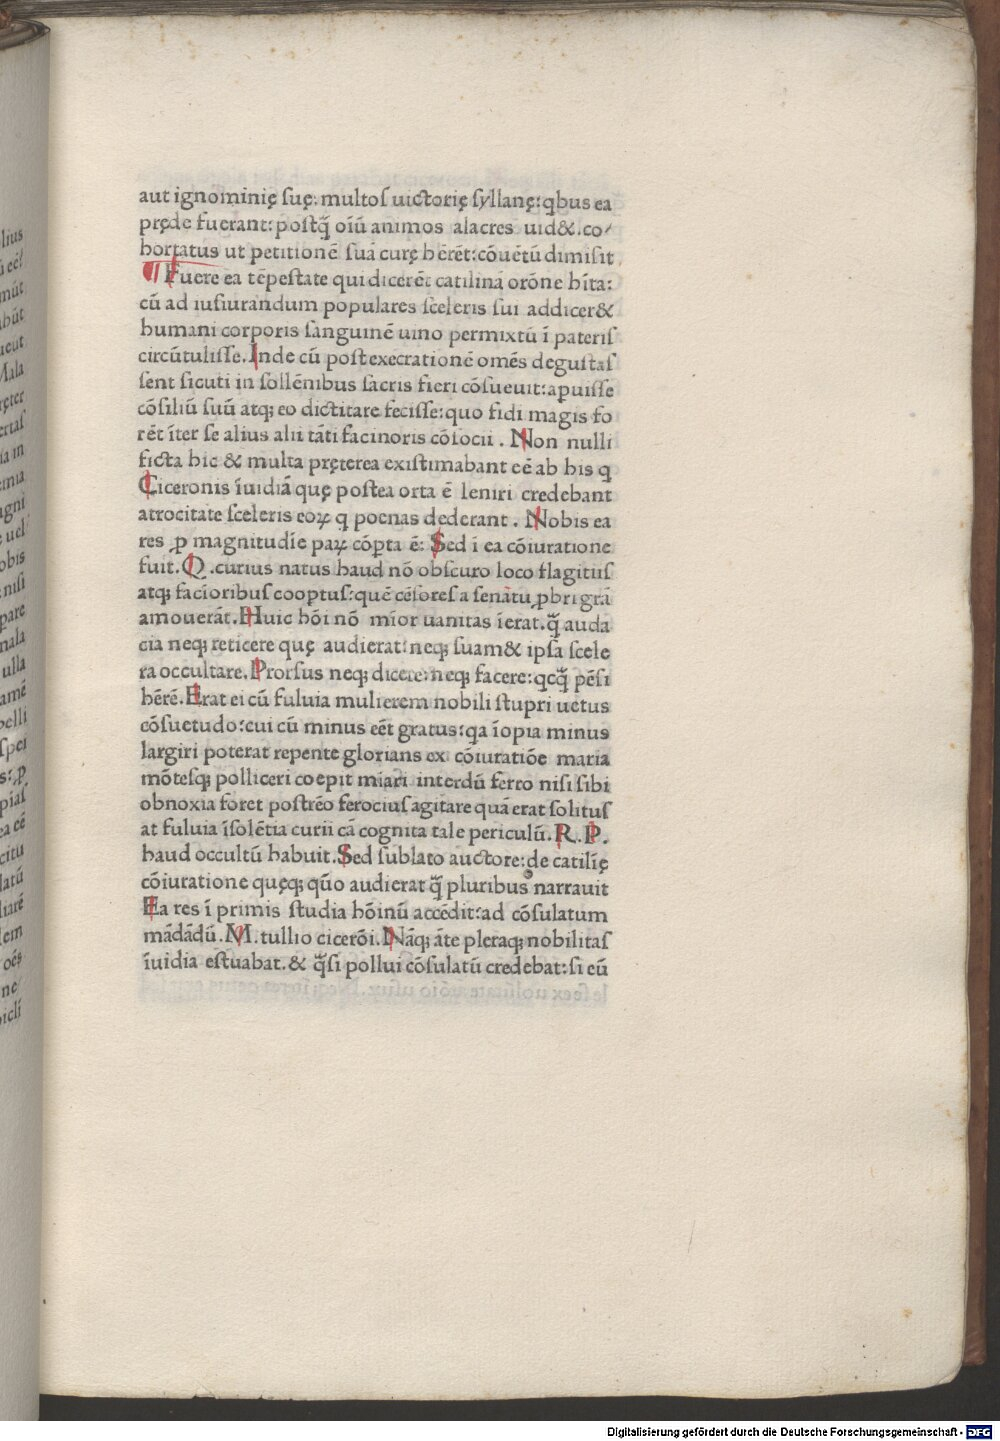 aut ignominię ſuę: multoſ uictorię ſyllanę: qbus ea
pręde fuerant: poſtq̄ oīū animos alacres uid&. co⸗
hortatus ut petitionē ſuā curę hērēt: cōuētū dimiſit.
¶ Fuere ea tēpeſtate qui dicerēt catilinā orōne hīta:
cū ad iuſiurandum populares ſceleris ſui addicer&
humani corporis ſanguinē uino permixtū ī pateriſ
circūtuliſſe. Inde cū poſt execrationē omēs deguſtaſ
ſent ſicuti in ſollēnibus ſacris fieri cōſueuit: apuiſſe
cōſiliū ſuū atq; eo dictitare feciſſe: quo fidi magis fo
rēt īter ſe alius alii tāti facinoris cōſocii. Non nulli
ficta hic & multa pręterea exiſtimabant eē ab his q
Ciceronis īuidiā quę poſtea orta ē leniri credebant
atrocitate ſceleris eoꝝ q poenas dederant. Nobis ea
res ꝓ magnitudīe paꝝ cōꝑta ē: Sed ī ea cōiuratione
fuit. Q. curius natus haud nō obſcuro loco flagitiiſ
atq; facioribuſ cooptuſ: quē cēſoreſ a ſenātu ꝓbri grā
amouerāt. Huic hōi nō mīor uanitas īerat. q̄ auda
cia neq; reticere quę audierat: neq; ſuam& ipſa ſcele
ra occultare. Prorſus neq; dicere: neq; facere: qcq̄ pēſi
hērē. Erat ei cū fuluia mulierem nobili ſtupri uetus
cōſuetudo: cui cū minus eēt gratus: qa īopia minus
largiri poterat repente glorians ex cōiuratiōe maria
mōteſq; polliceri coepit miari interdū ferro niſi ſibi
obnoxia foret poſtrēo ferociuſ agitare quā erat ſolituſ
at fuluia īſolētia curii cā cognita tale periculū. R. P.
haud occultū habuit. Sed ſublato auctore: de catilīę
cōiuratione quęq; qūo audierat q̄ pluribus narrauit
Ea res ī primis ſtudia hōinū accēdit: ad cōſulatum
mādādū. M. tullio cicerōi. Nāq; āte pleraq; nobilitaſ
īuidia eſtuabat. & q̄ſi pollui cōſulatū credebat: ſi eū
Digitalisierung gefördert durch die Deutsche Forschungsgemeinschaft - DFG